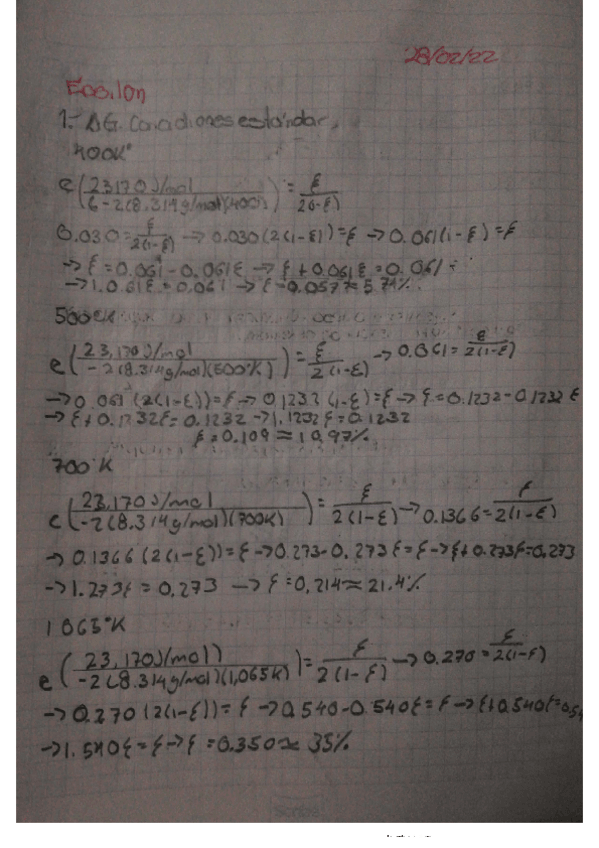 28/02/22
Epsilon
1.- ΔG. Condiciones estándar.
400K°
e(23170 J/mol / -2(8.314 g/mol)(400)) = ξ / 2(1-ξ)
0.030 = ξ / 2(1-ξ) → 0.030(2(1-ξ)) = ξ → 0.061(1-ξ) = ξ
→ ξ = 0.061 - 0.061ξ → ξ + 0.061ξ = 0.061
→ 1.061ξ = 0.061 → ξ = 0.057 ≈ 5.74%
500°K
e(23,170 J/mol / -2(8.314 g/mol)(500°K)) = ξ / 2(1-ξ) → 0.061 = ξ / 2(1-ξ)
→ 0.061(2(1-ξ)) = ξ → 0.1232(1-ξ) = ξ → ξ = 0.1232 - 0.1232ξ
→ ξ + 0.1232ξ = 0.1232 → 1.1232ξ = 0.1232
ξ = 0.109 ≈ 10.97%
700°K
e(23,170 J/mol / -2(8.314 g/mol)(700K)) = ξ / 2(1-ξ) → 0.1366 = ξ / 2(1-ξ)
→ 0.1366(2(1-ξ)) = ξ → 0.273 - 0.273ξ = ξ → ξ + 0.273ξ = 0.273
→ 1.273ξ = 0.273 → ξ = 0.214 ≈ 21.4%
1065°K
e(23,170 J/mol) / -2(8.314 g/mol)(1,065K)) = ξ / 2(1-ξ) → 0.270 = ξ / 2(1-ξ)
→ 0.270(2(1-ξ)) = ξ → 0.540 - 0.540ξ = ξ → ξ + 0.540ξ = 0.54
→ 1.540ξ = ξ → ξ = 0.350 ≈ 35%